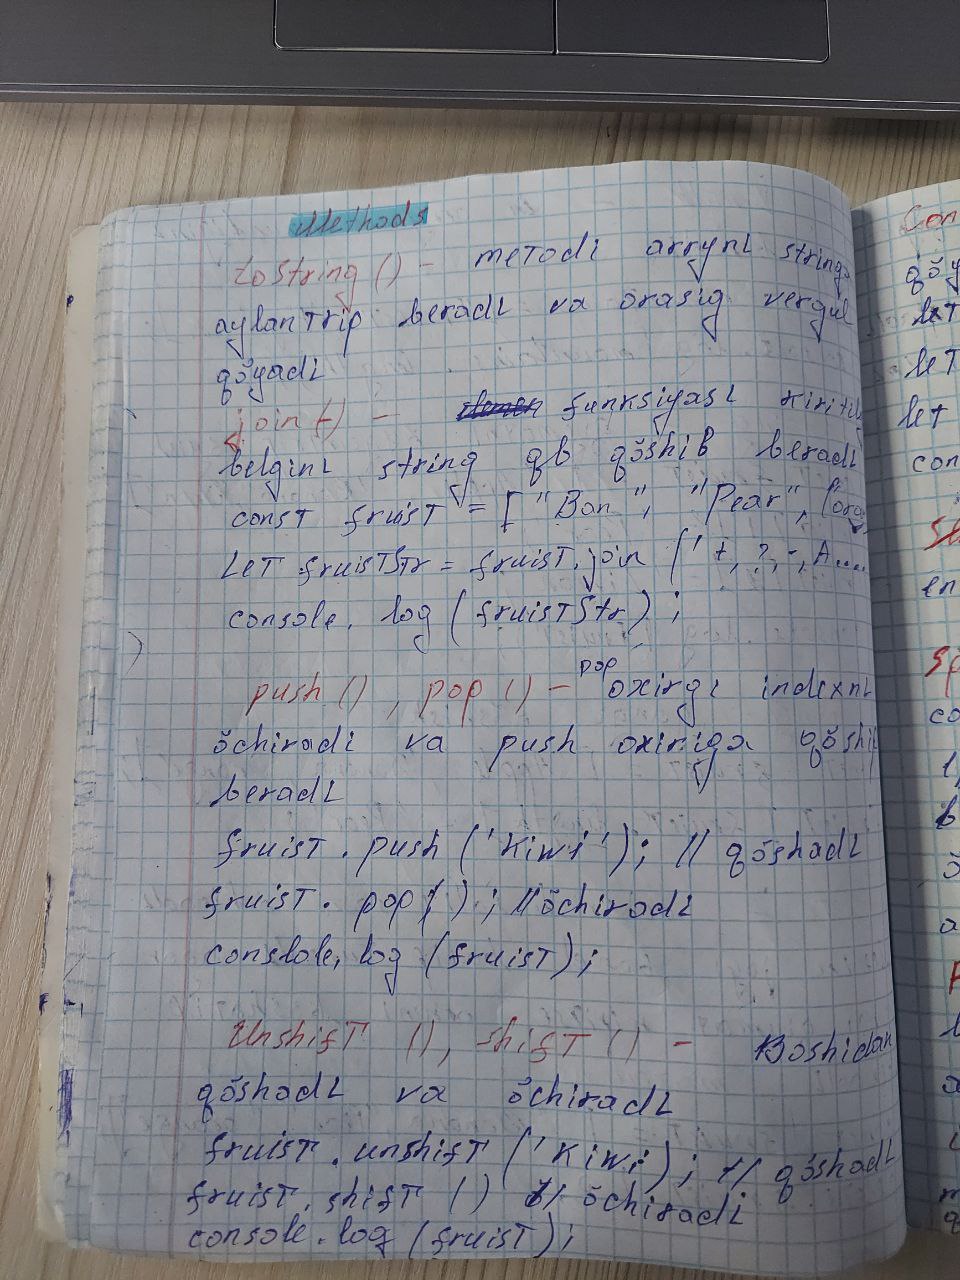 Methods
toString () - metodi arryni string
aylantrip beradi va örasig vergul
qöyadi
join () - funksiyasi kiritil
belgini string qb qöshib beradi
const fruist = [ "Ban", "Pear", (ora
Let fruistStr = fruist.join ('+, ?, -, A....
console. log (fruistStr) ;
push () , pop () - pop oxirgi indexni
öchiradi va push oxiriga qöship
beradi
fruist . push ('Kiwi'); // qöshadi
fruist . pop () ; // öchiradi
conslole, log (fruist) ;
Unshift (), shift () - Boshidan
qöshadi va öchiradi
fruist . unshift ('Kiwi) ; // qöshadi
fruist. shift () // öchiradi
console . log (fruist) ;
Con
qöy
let
let
let
con
en
Sp
co
a